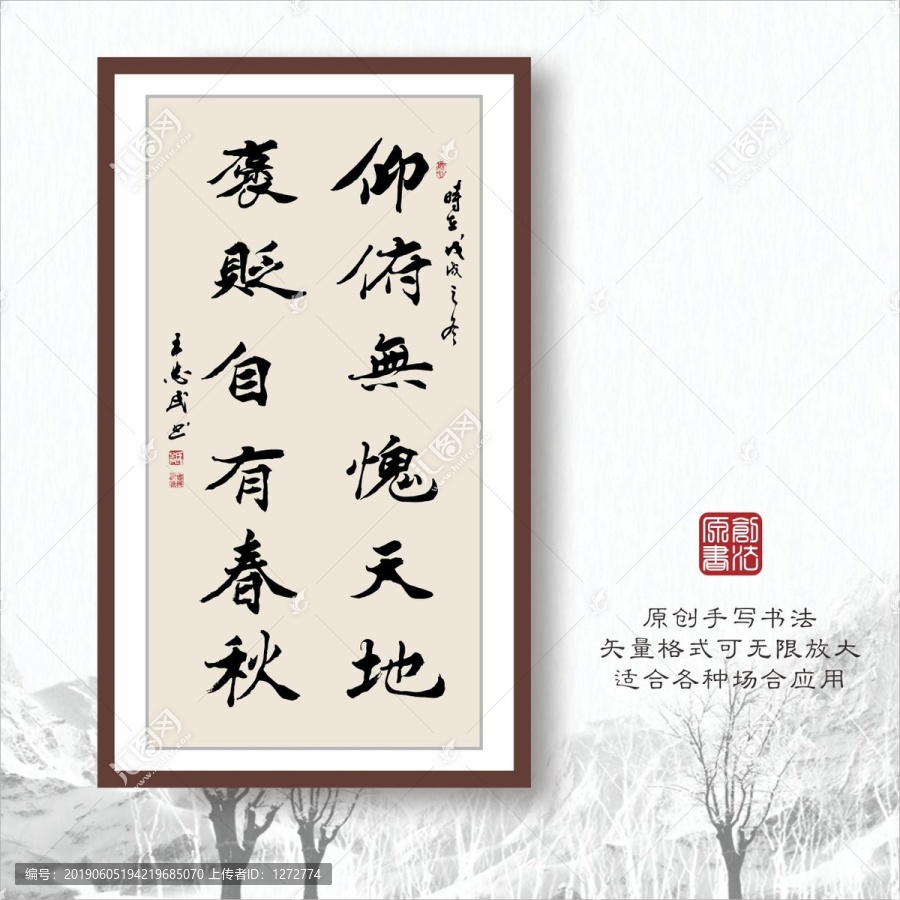 時在戊戌之冬
仰俯無愧天地
褒貶自有春秋
原創書法
原创手写书法
矢量格式可无限放大
适合各种场合应用
汇图网
www.huitu.com
编号：20190605194219685070 上传者ID：1272774